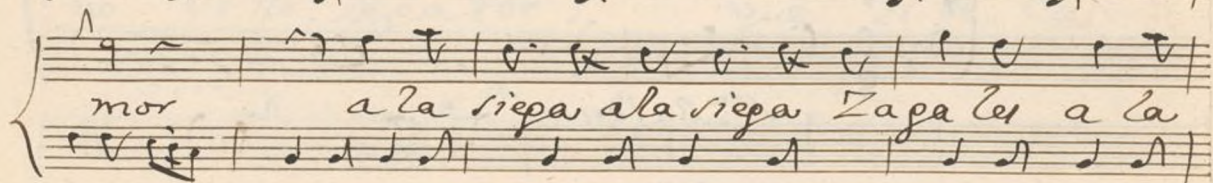 mor a la siega ala siega Zagales a la